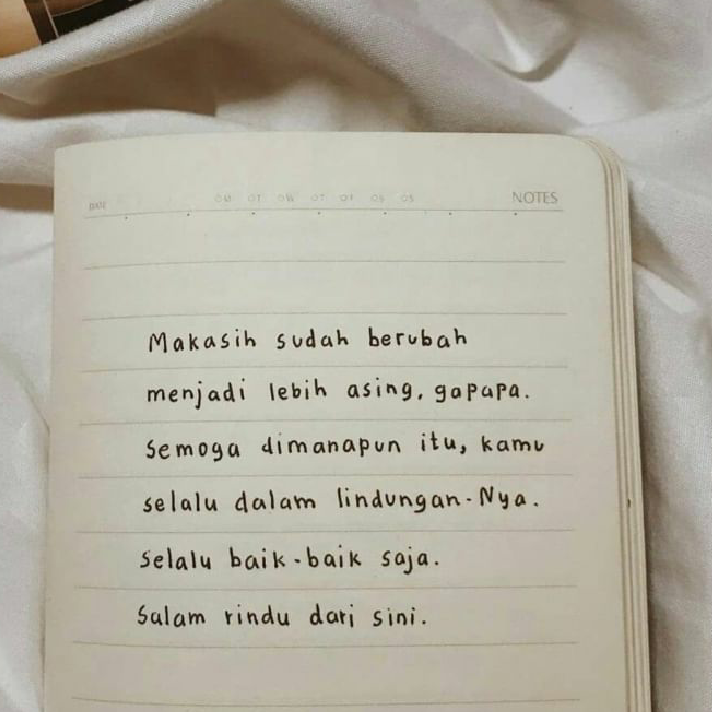 NOTES
Makasih sudah berubah
menjadi lebih asing, gapapa.
Semoga dimanapun itu, kamu
selalu dalam lindungan-Nya.
Selalu baik-baik saja.
Salam rindu dari sini.